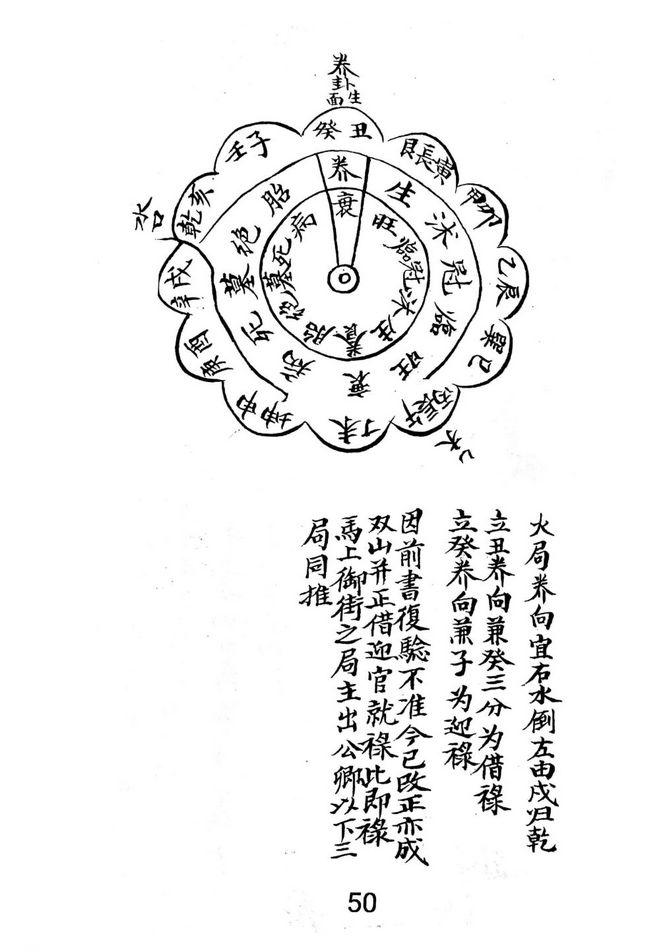 养
卦生
面
癸丑
艮長寅
甲卯
乙辰
巽巳
丙長午
丁未
坤申
庚酉
辛戌
乾亥
壬子
水口
水
养生沐冠临旺衰病死墓绝胎
衰旺临冠沐生養胎绝墓死病
火局养向宜右水倒左由戌归乾
立丑养向兼癸三分为借禄
立癸养向兼子为迎禄
因前書復驗不准今已改正亦成
双山并正借迎官就禄此即禄
馬上御街之局主出公卿以下三
局同推
50